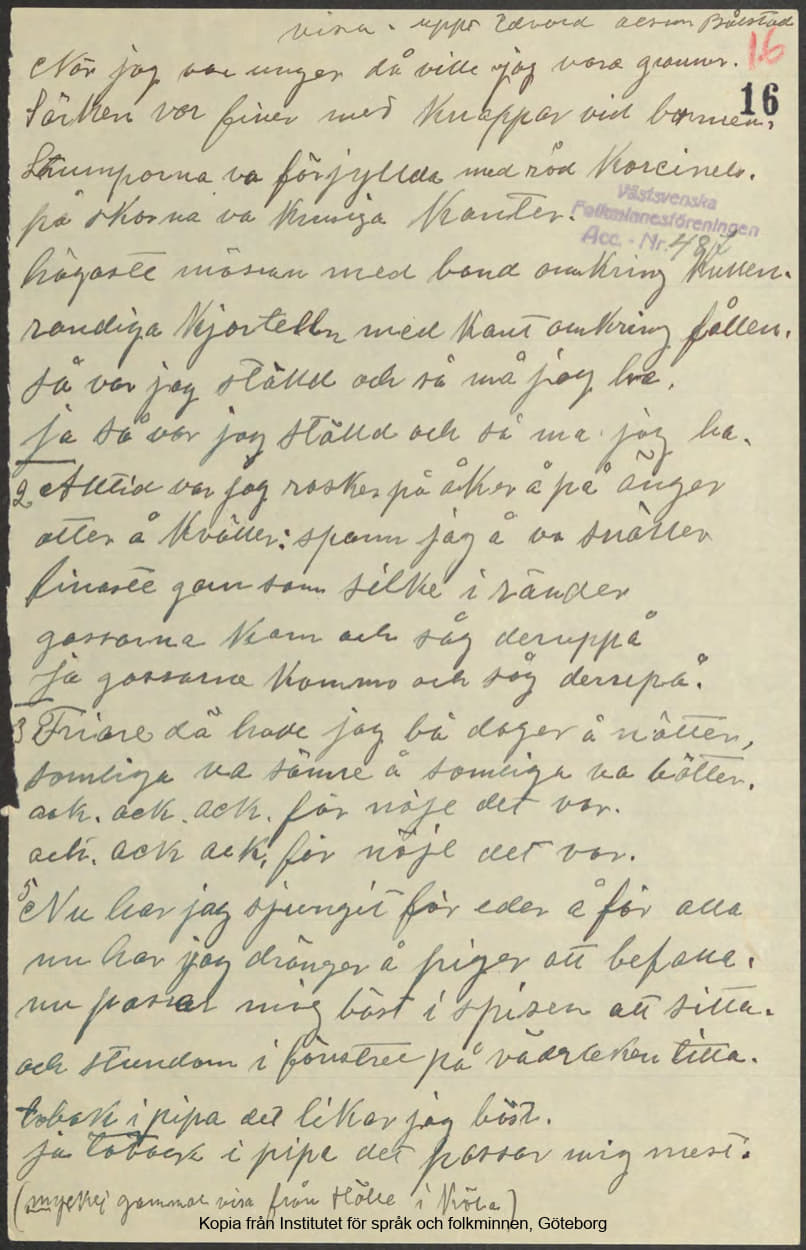 visa. uppt Edvard Bålstad
16
När jag var unger då ville jag vara granner.
16
Särken var finer med Knäppar vid barmen.
Strumporna va förfyllda med röd
på skorna va Krusiga Kanter.
Västsvenska
Folkminnesföreningen
Acc. - Nr. 487
högaste mössan med band omkring Kullen.
randiga Kjortelln med Kant omkring fållen.
så var jag ställd och så må jag ha.
ja så var jag ställd och så ma jag ha.
2 Alltid var jag rasker på åker å på änger
otter å Kväller: spann jag å va snäller
finaste garn som silke i ränder
gossarna Kom och såg deruppå
ja gossarna Kommo och såg deruppå.
3 Friare då hade jag bå dager å nätter,
somliga va sämre å somliga va bätter.
ack. ack. ack. för nöje det var.
ack. ack ack, för nöje det var.
5 Nu har jag sjungit för eder å för alla
nu har jag dränger å piger att befalla.
nu passar mig bäst i spisen att sitta.
och stundom i fönstret på väderleken titta.
tobak i pipa det likar jag bäst.
ja toback i pipa det passar mig mest.
(mycke gammal visa från i )
Kopia från Institutet för språk och folkminnen, Göteborg